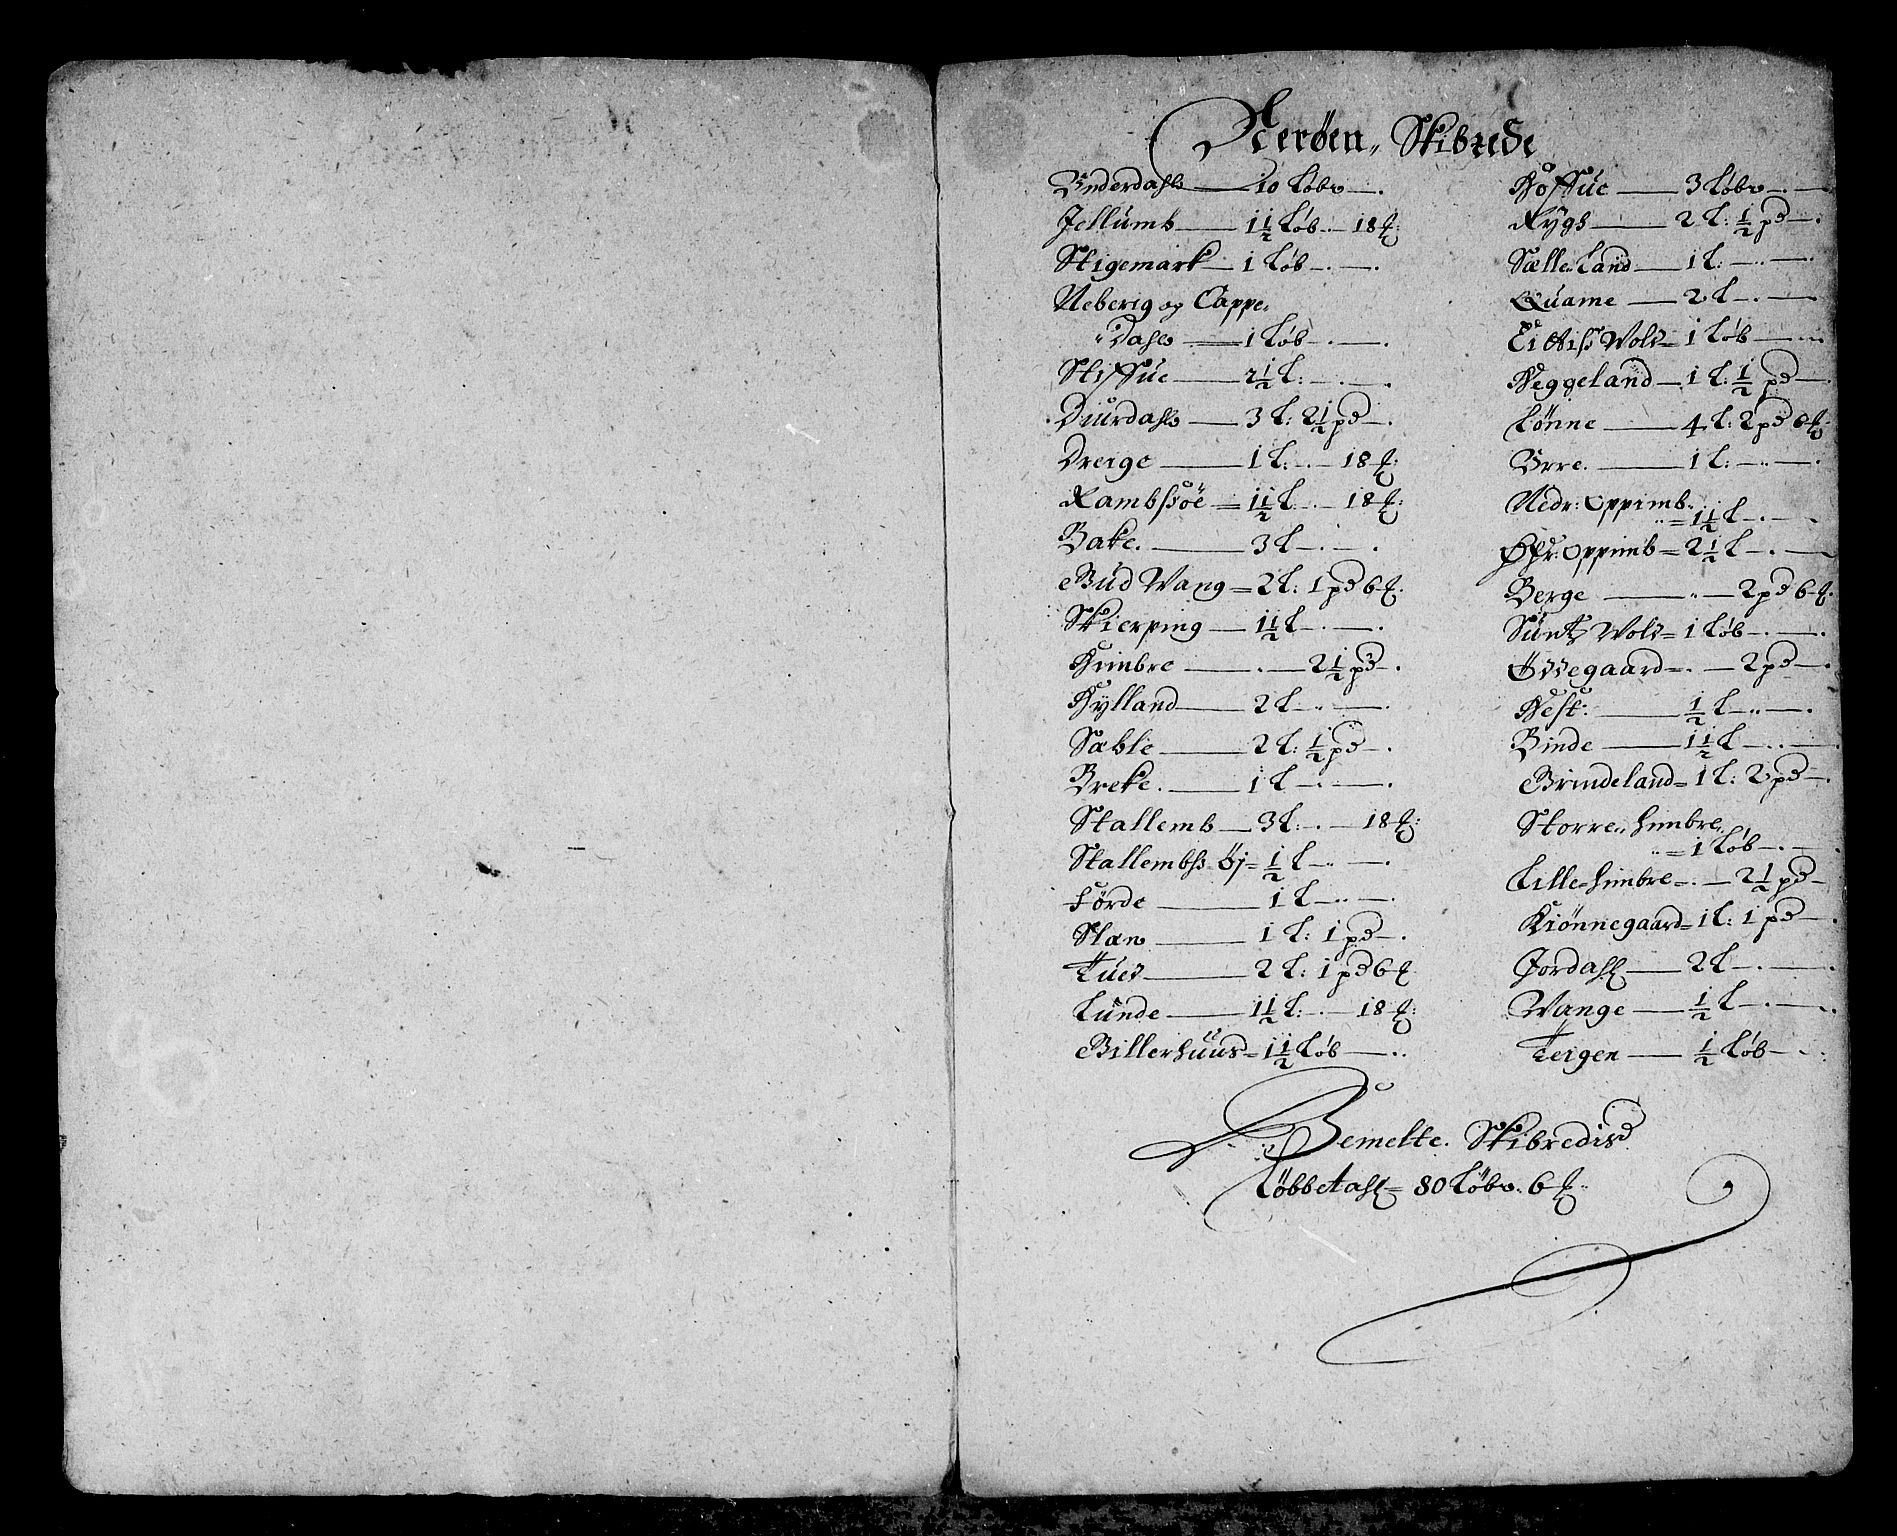 Nerøen Skibrede
Underdahl 10 Løbr
Jellumb 1½ Løb 18 ℔
Stigemark 1 Løb
Neberig og Cappe
Dahl 1 Løb
Stiffue 2½ L:
Diurdahl 3 L: 2½ pd
Dreige 1 L: 18 ℔
Rambsøe 1½ L 18 ℔
Bake 3 L
Bud Wang 2 L: 1 pd 6 ℔
Skierping 1½ L
Himbre 2½ pd
Hylland 2 L
Sæble 2 L: ½ pd
Breke 1 L
Stallemb 3 L: 18 ℔
Stallembs Øj ½ L
Førde 1 L
Slæn 1 L: 1 pd
Tued 2 L: 1 pd 6 ℔
Lunde 1½ L: 18 ℔
Billerhuus 1½ Løb
Hoffue 3 Løbr
Rygh 2 L: ½ pd
Sælle Land 1 L:
Quame 2 L
Wold 1 Løb
Heggeland 1 L: ½ pd
Lønne 4 L: 2 pd 6 ℔
Urre 1 L:
Nedr: Oppimb
1½ L
Øfr: Oppimb 2½ L
Berge 2 pd 6 ℔
Sundtz Wold 1 Løb
gaard 2 pd
Hest: ½ L
Binde 1½ L
Brindeland 1 L: 2 pd
Storre himbre
1 Løb
Lille himbre 2½ pd
Kiønnegaard 1 L: 1 pd
Jordahl 2 L
Wange ½ L
Teigen ½ Løb
Bemelte Skibredis
Løbbetahl 80 Løbr 6 ℔